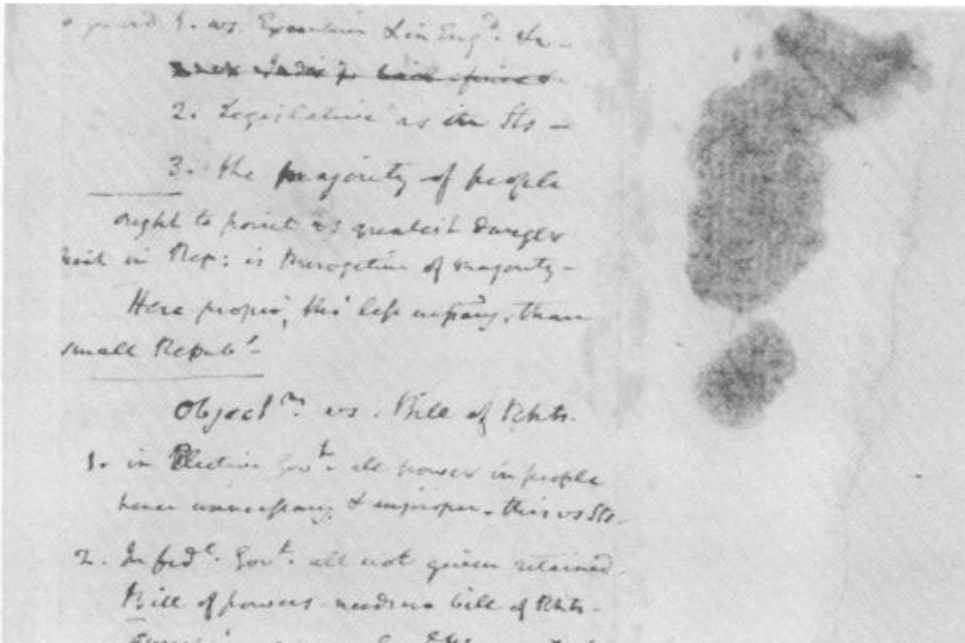 guard 1. vs. Executive & in Engd. &c—
2. Legislative as in Sts—
3. the majority of people
ought to point as greatest danger
which in Rep: is Prerogative of majority—
Here proper, tho' less necessary, than
small Repubs.—
Objectns. vs. Bill of Rhts.
1. in Elective Govts. all power in people
hence unnecessary & improper—this vs Sts.
2. In fedl. Govt. all not given retained
Bill of powers—needs no bill of Rhts—